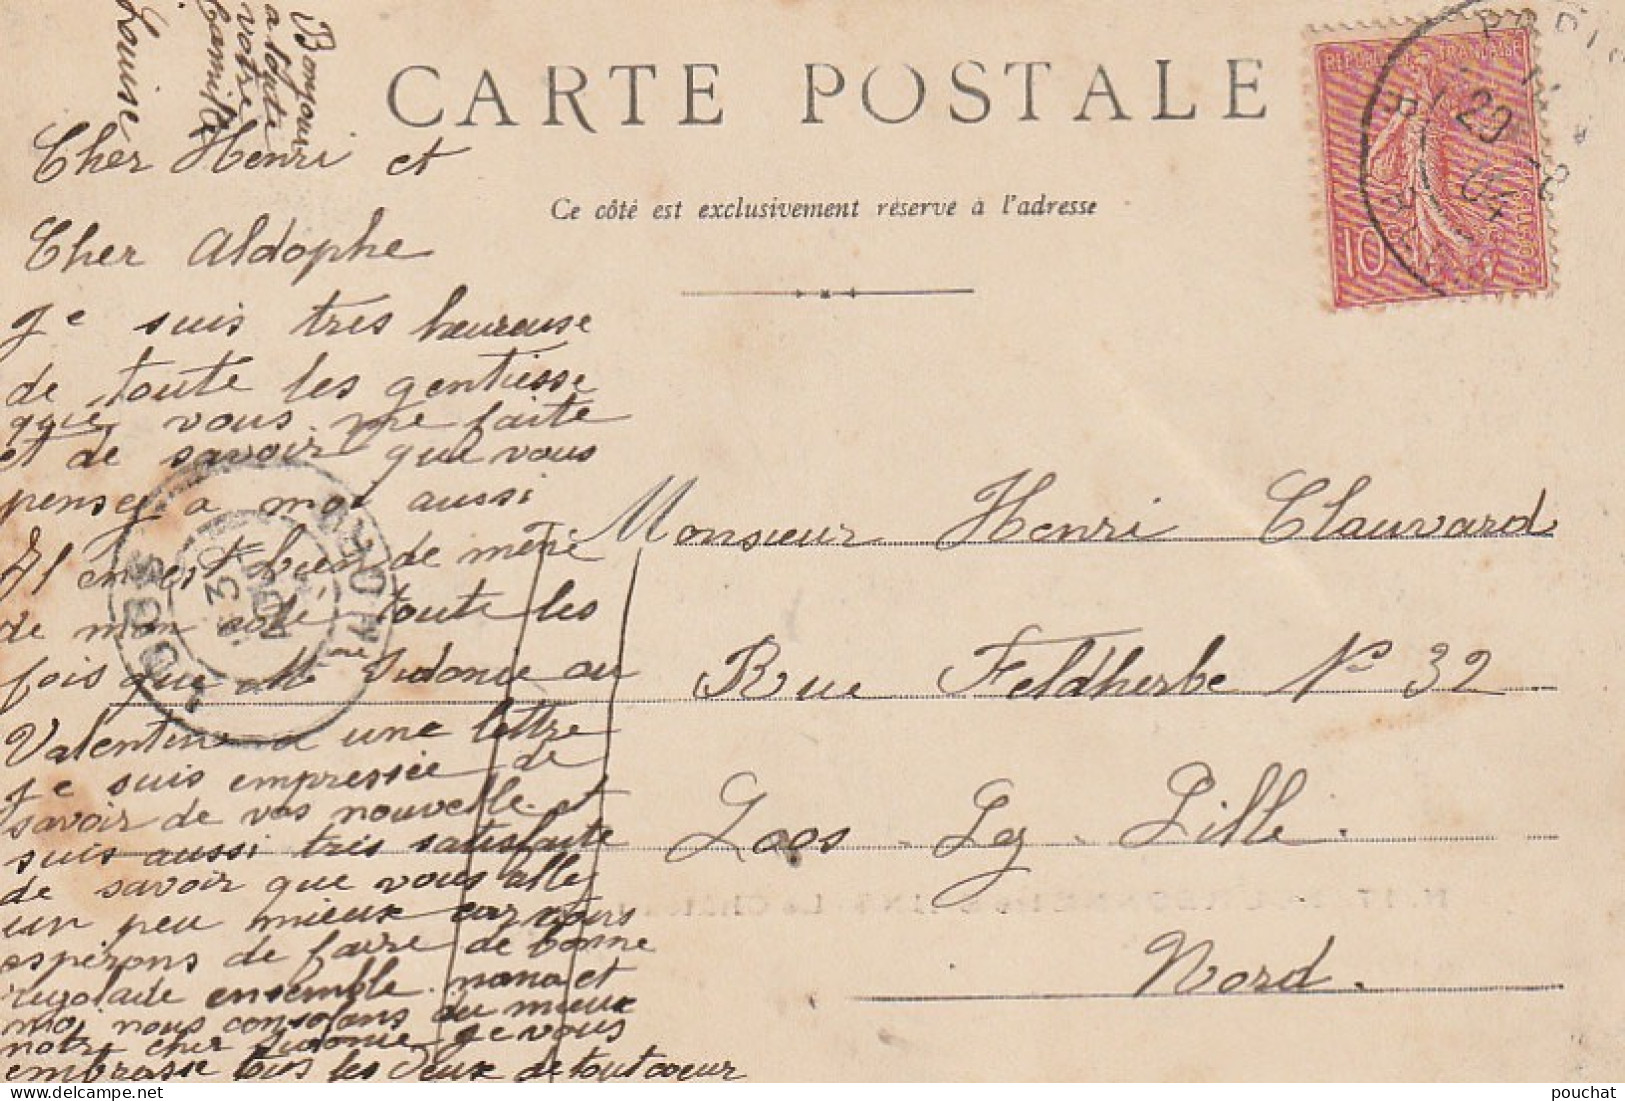 Bonjour
a toute
votre
Camille
Louise
CARTE POSTALE
Ce côté est exclusivement réservé à l'adresse
REPUBLIQUE FRANÇAISE
POSTES
10
PARIS
29
04
Cher Henri et
Cher Aldophe
Je suis très heureuse
de toute les gentiesse
que vous me faite
et de savoir que vous
pensez a moi aussi
Il en est bien de mème
de mon coté toute les
fois que Mme Sidonie ou
Valentin a une lettre
je suis empressée de
savoir de vos nouvelle et
suis aussi très satisfaite
de savoir que vous allez
un peu mieux car nous
espérons de faire de bonne
rigolade ensemble. nana et
moi nous consolons du mieux
notre cher Sidonie je vous
embrasse tous les deux de tout coeur
LOOS
NORD
30
Monsieur Henri Clauvard
Rue Feldherbe No 32
Loos - Lez - Lille.
Nord.
pouchat